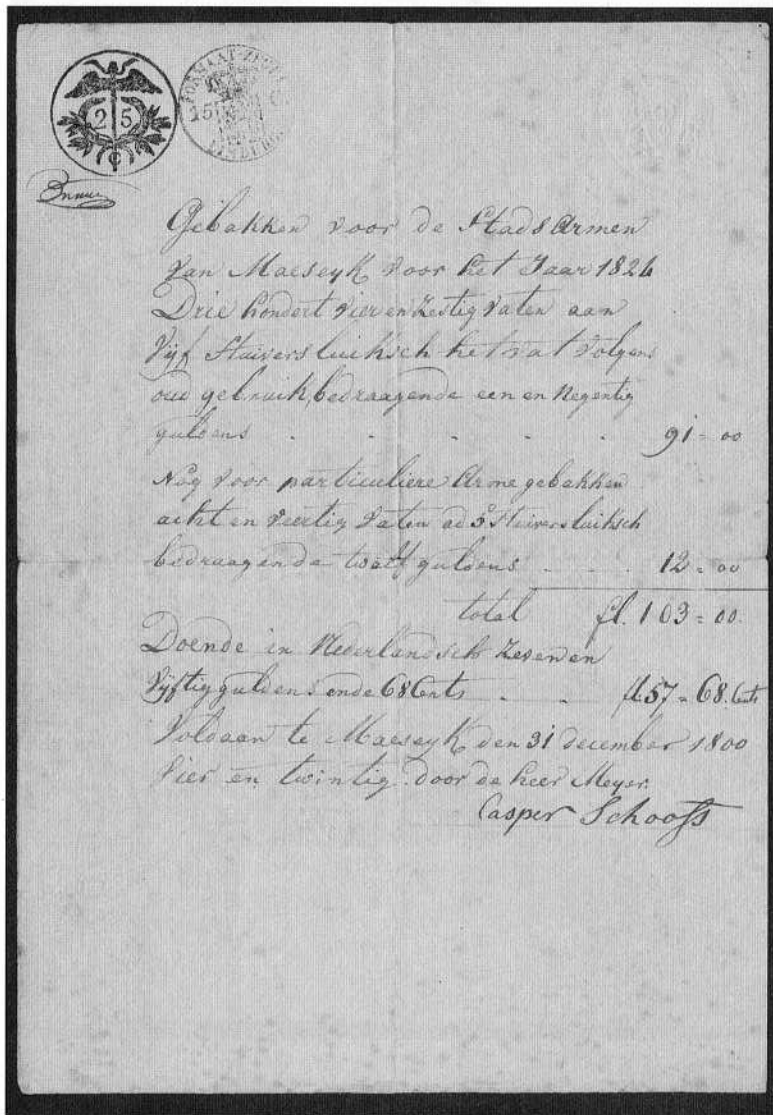 25
FORMAAT-ZEGEL
LIMBURG
Gebakken voor de StadsArmen
van Maeseyk voor het Jaar 1824
Drie hondert vier en Zestig vaten aan
Vijf Stuivers luiksch het vat volgens
oud gebruik, bedraagende een en Negentig
guldens . . . . . 91 = 00
Nog voor particuliere Arme gebakken
acht en veertig vaten ad 5 Stuivers luiksch
bedraagende twalf guldens . . . 12 = 00
total fl. 103 = 00.
Doende in Nederlandsch Zeven en
Vijftig guldens ende 68 Cents . . fl 57 = 68. Cents
Voldaan te Maeseyk den 31 december 1800
Vier en twintig door de heer Meyer.
Casper Schoofs